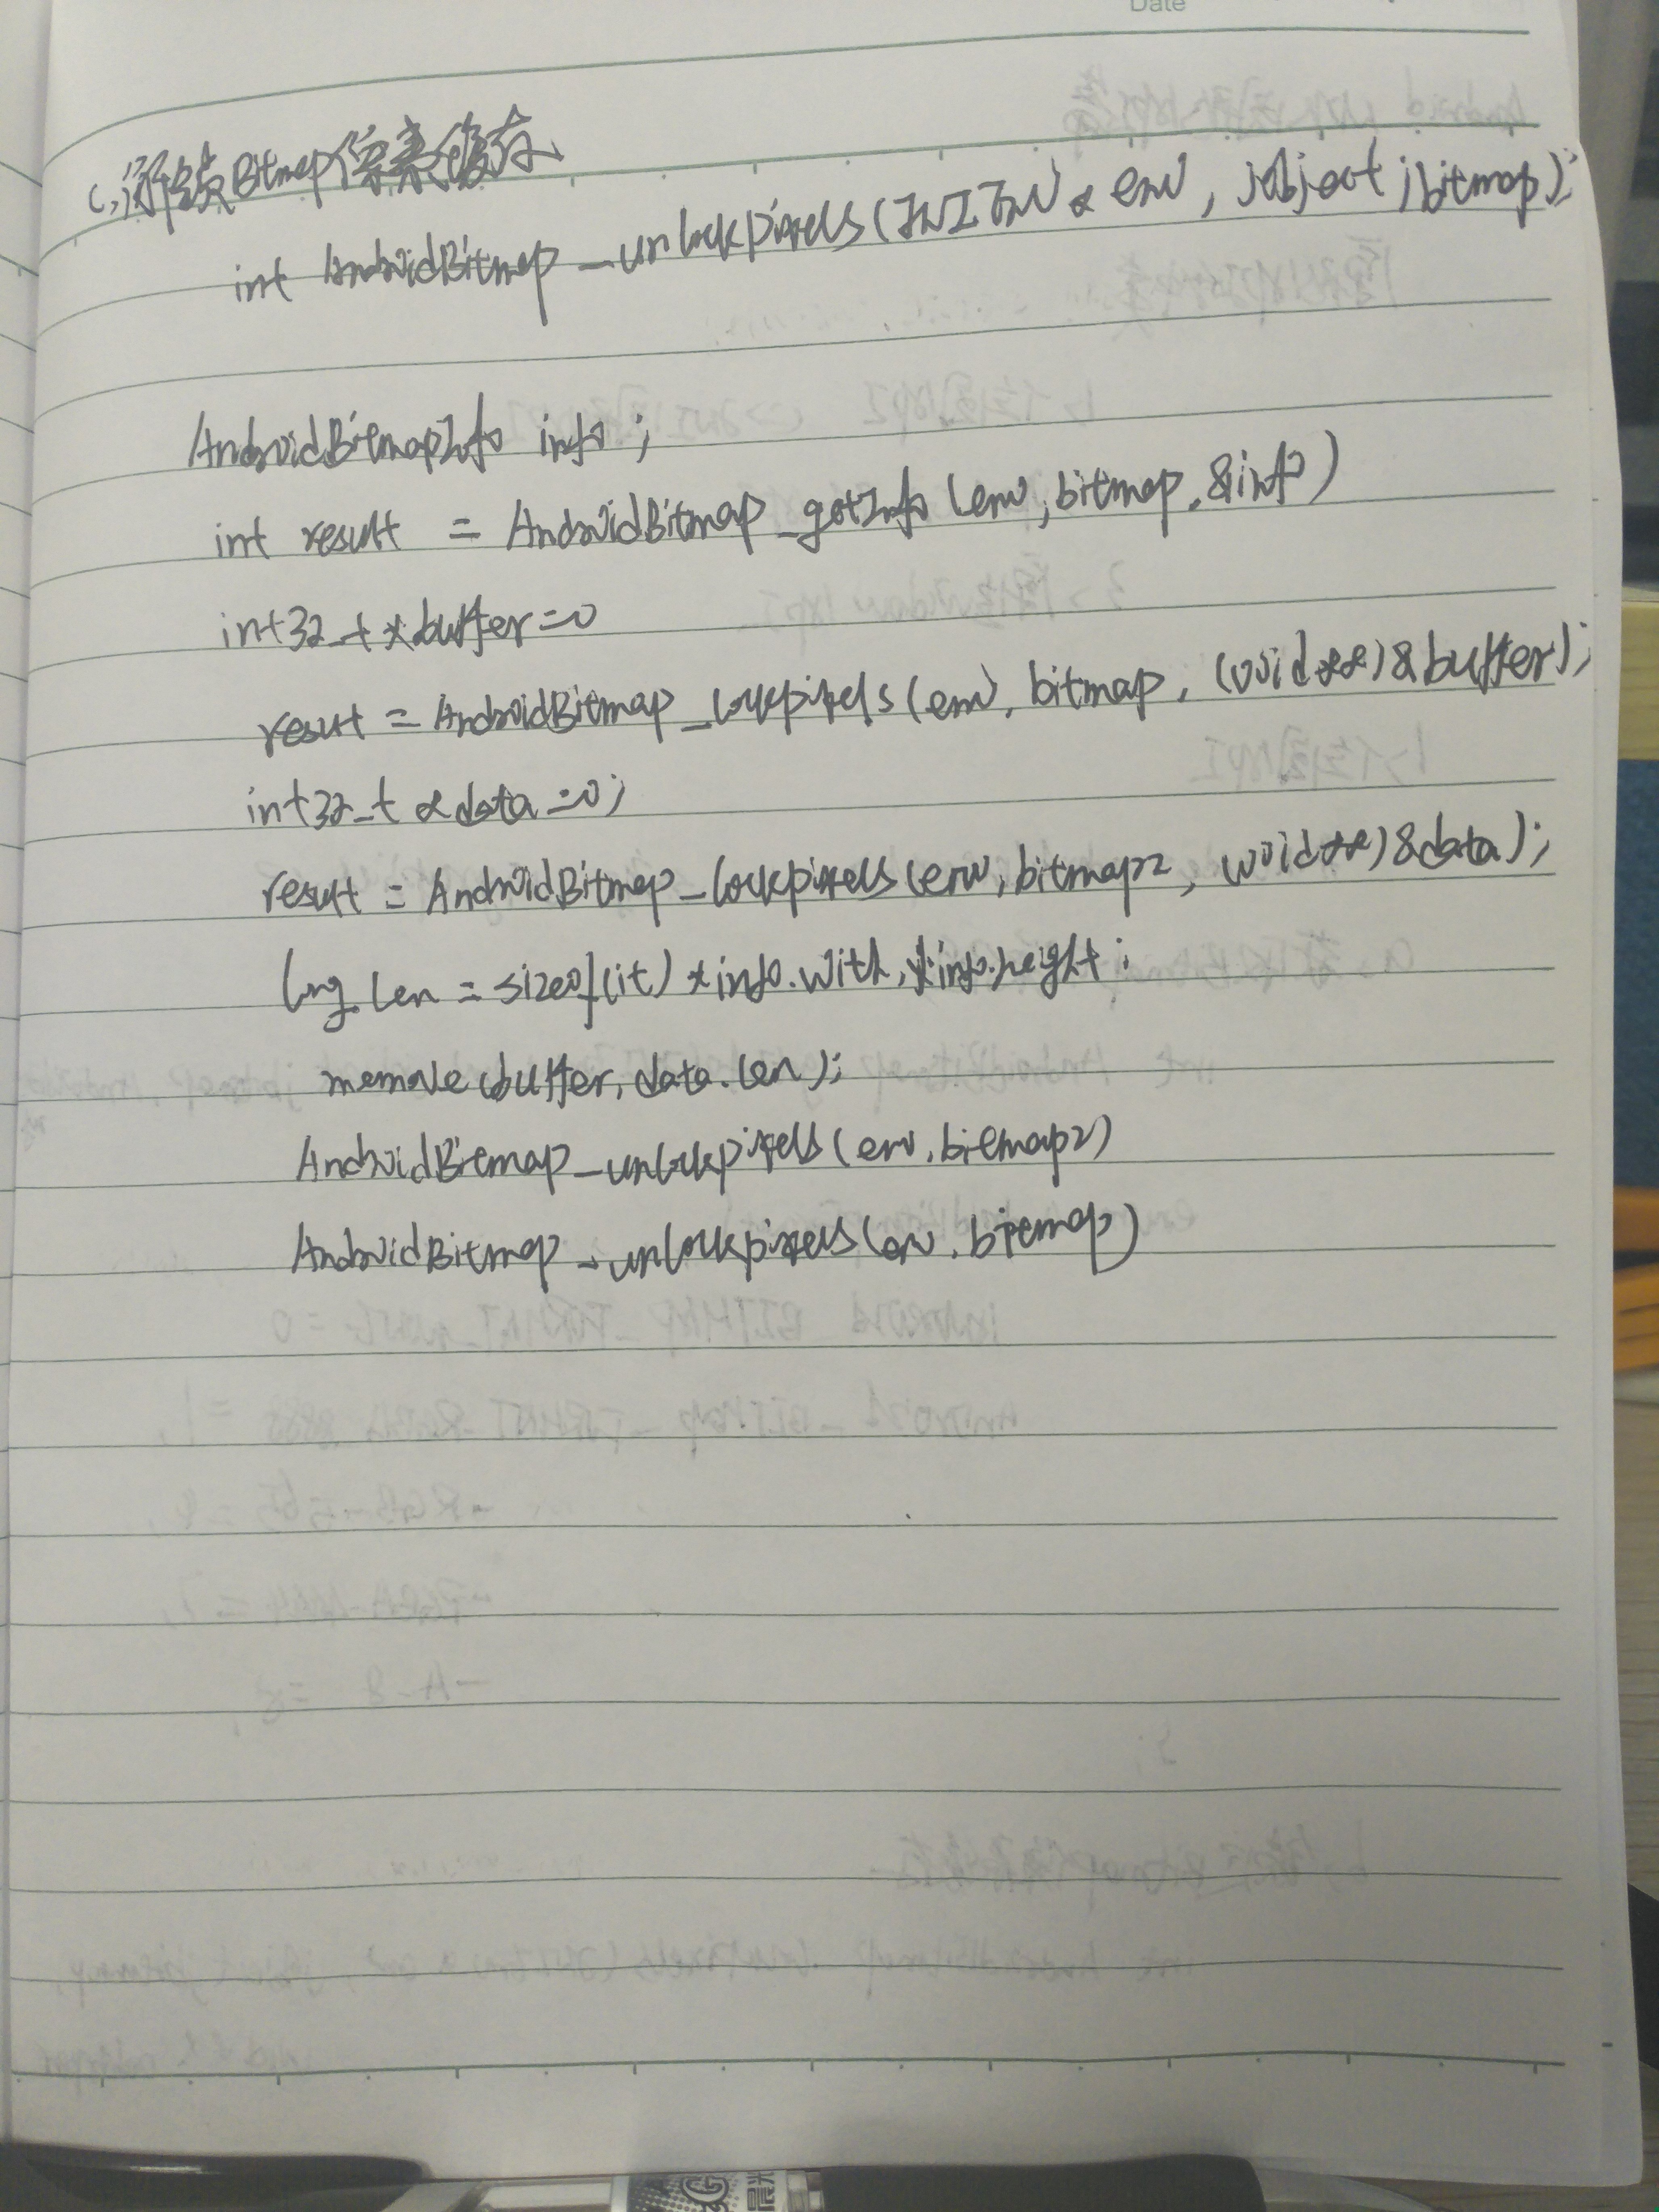 Date
c,解锁Bitmap像素缓存
int AndroidBitmap_unlockpixels(JNIEnv * env, jobject jbitmap);
AndroidBitmapInfo info;
int result = AndroidBitmap_getInfo (env, bitmap, &info)
int32_t *buffer=0
result = AndroidBitmap_lockpixels(env, bitmap, (void**)&buffer);
int32_t *data=0;
result = AndroidBitmap_lockpixels(env, bitmap2, (void**)&data);
long len = sizeof(it) *info.with, *info.height;
memove(buffer, data.len);
AndroidBitmap_unlockpixels(env.bitmap2)
AndroidBitmap_unlockpixels(env.bitmap)